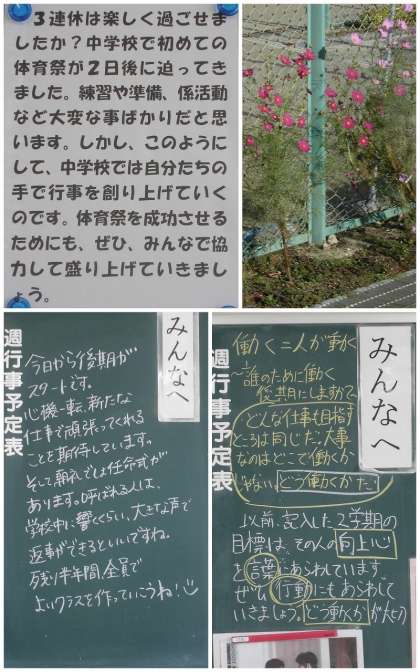 ３連休は楽しく過ごせま
したか？中学校で初めての
体育祭が２日後に迫ってき
ました。練習や準備、係活動
など大変な事ばかりだと思
います。しかし、このように
して、中学校では自分たちの
手で行事を創り上げていく
のです。体育祭を成功させる
ためにも、ぜひ、みんなで協
力して盛り上げていきまし
ょう。
みんなへ
週行事予定表
今日から後期が
スタートです。
心機一転、新たな
仕事で頑張ってくれる
ことを期待しています。
そして朝礼では任命式が
あります。呼ばれる人は、
学校中に響くくらい、大きな声で
返事ができるといいですね。
残り半年間、全員で
よいクラスを作っていこうね！
みんなへ
週行事予定表
働く＝人が動く
〜誰のために働く
後期にしますか？
どんな仕事も目指す
ところは同じだ。大事
なのはどこで働くか
じゃない。どう働くかだ！
以前、記入した2学期の
目標は、その人の向上心
を言葉にあらわしています。
ぜひ行動にもあらわして
いきましょう。どう働くかが大切